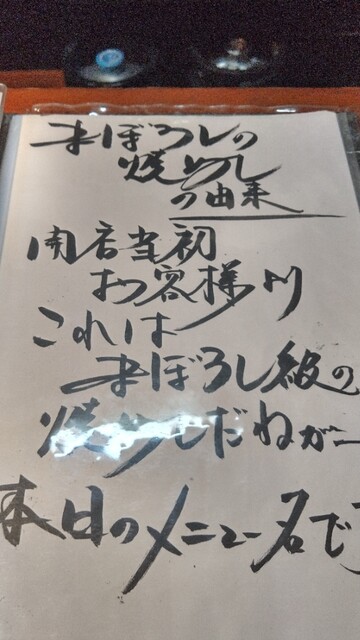 まぼろしの
焼めし
の由来
開店当初
お客様より
これは
まぼろし級の
焼めしだねが
本日のメニュー名で